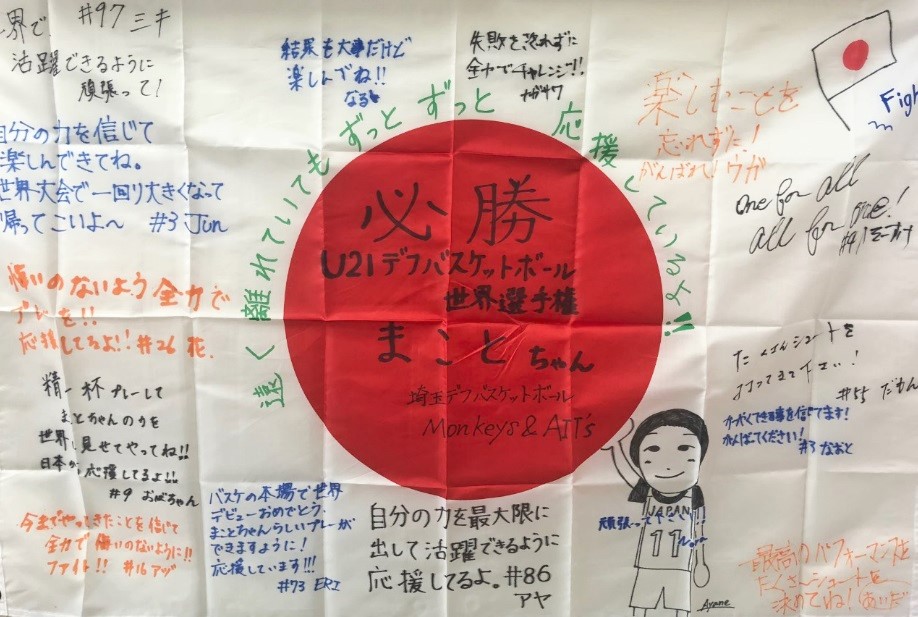 #97 ミキ
界で
活躍できるように
頑張って！
結果も大事だけど
楽しんでね!!
なる
失敗を恐れずに
全力でチャレンジ!!
ナガサワ
楽しむことを
忘れずに！
がんばれ！ウガ
Figh
自分の力を信じて
楽しんできてね。
世界大会で一回り大きくなって
帰ってこいよ〜 #3 Jun
遠く離れていてもずっとずっと応援しているよ!!
one for all
all for one!
必勝
U21デフバスケットボール
世界選手権
まことちゃん
埼玉デフバスケットボール
Monkeys & AIT's
悔いのないよう全力で
プレーを!!
応援してるよ!! #26 花.
精一杯プレーして
まことちゃんの力を
世界に見せてやってね!!
日本から応援してるよ!!
#9 おばちゃん
たくさんシュートを
打ってきて下さい！
#55 だもん
かがくできる事を信じてます！
がんばってください！
#3 なおと
今までやってきたことを信じて
全力で悔いのないように!!
ファイト!! #16 アヅ
バスケの本場で世界
デビューおめでとう。
まことちゃんらしいプレーが
できますように！
応援しています!!!
#73 ERI
自分の力を最大限に
出して活躍できるように
応援してるよ。#86
アヤ
JAPAN
11
頑張って
Ayane
最高のパフォーマンスを
たくさんシュートを
決めてね！